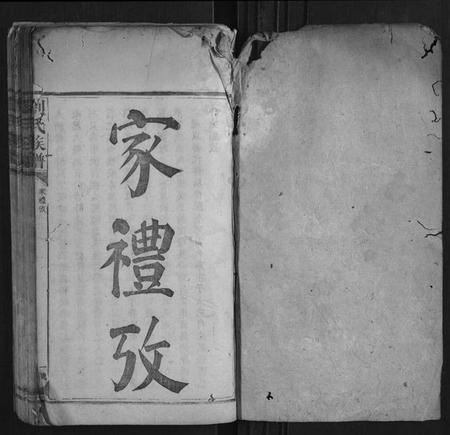 家禮攷
氏族譜
家禮攷